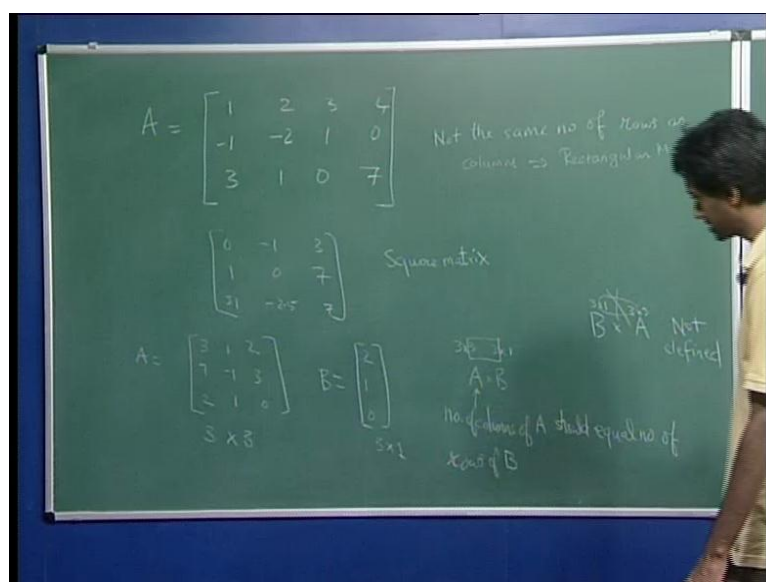 A = [ 1 2 3 4
-1 -2 1 0
3 1 0 7 ]
Not the same no of rows as
columns => Rectangular M
[ 0 -1 3
1 0 7
-2.5 7 ]
Square matrix
A = [ 3 1 2
7 -1 3
2 1 0 ]
3 x 3
B = [ 2
1
0 ]
3x1
3x3 3x1
A × B
no. of columns of A should equal no of
rows of B
3x1 3x3
B × A Not
defined